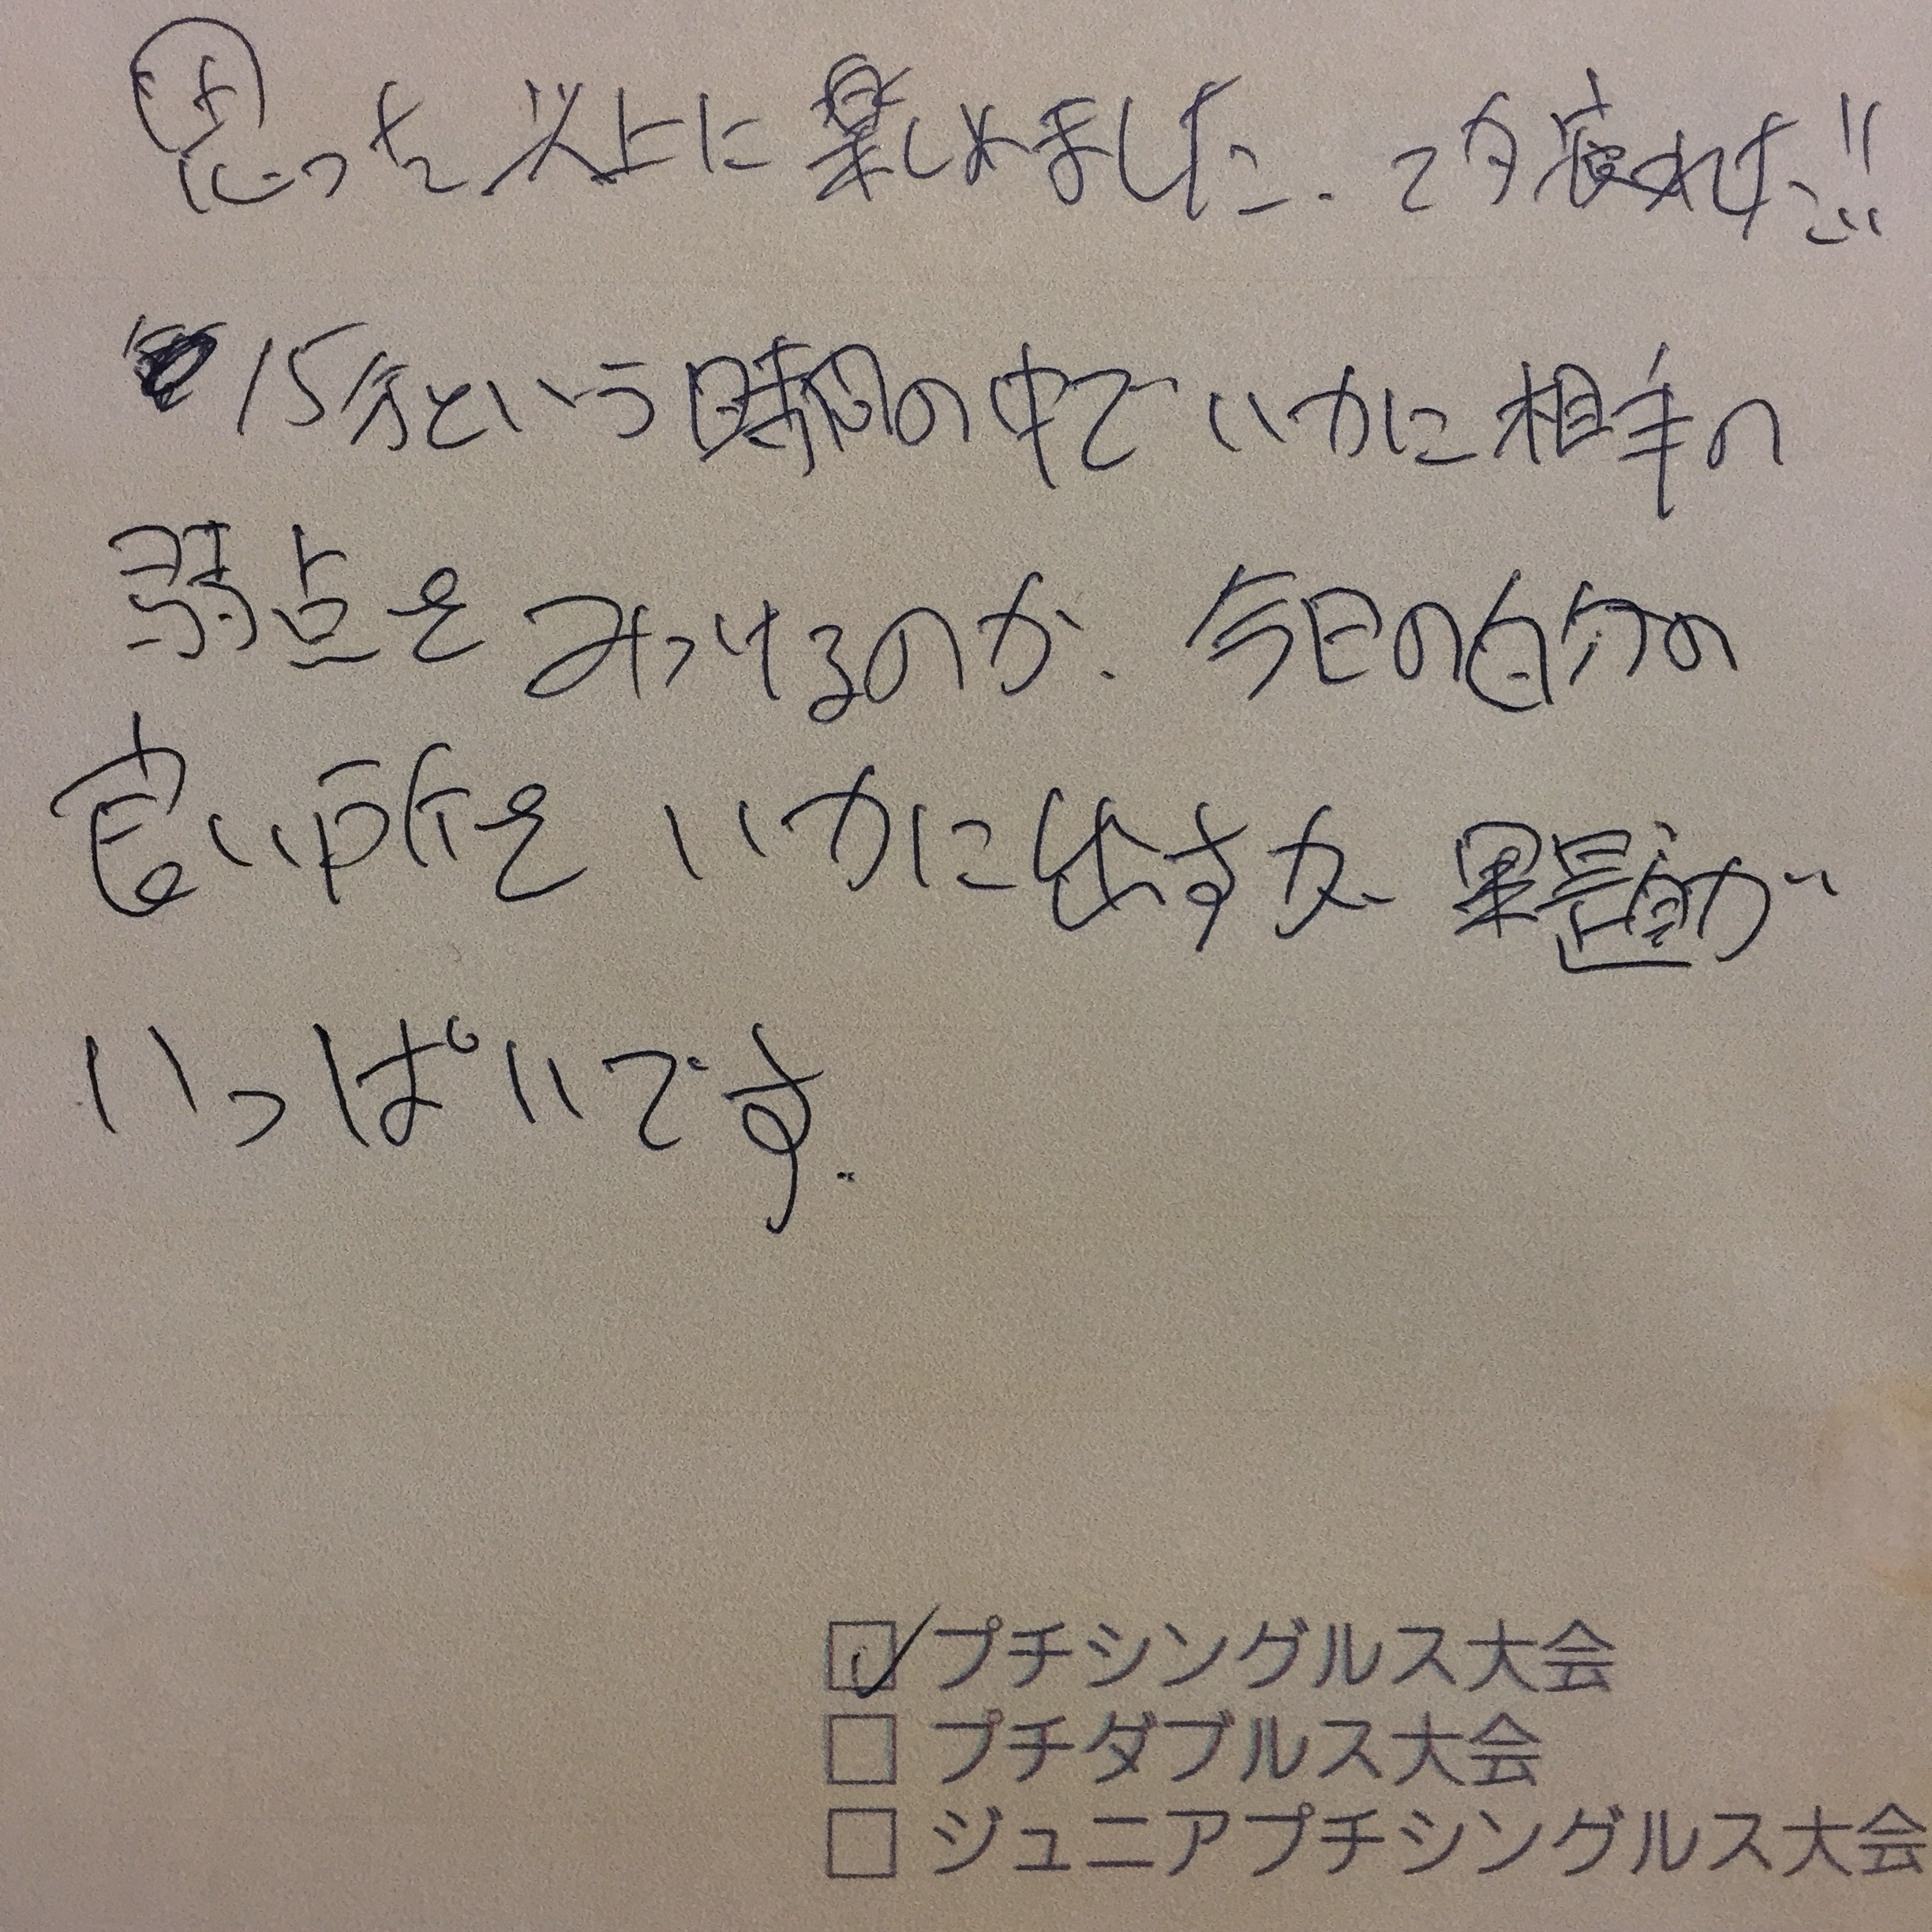 思った以上に楽しめました. 疲れた!!
15分という時間の中でいかに相手の
弱点をみつけるのか、今日の自分の
良い所をいかに出すか、果題が
いっぱいです.
プチシングルス大会
プチダブルス大会
ジュニアプチシングルス大会